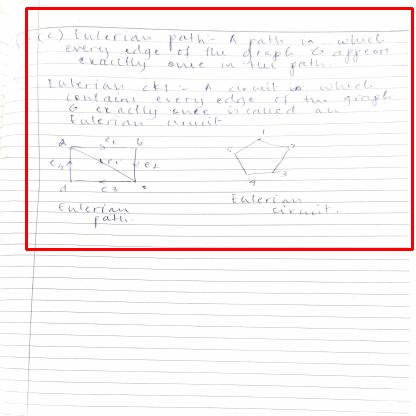 (c) Eulerian path:- A path in which
every edge of the graph G appears
exactly once in the path.
Eulerian ckt:- A circuit which
contains every edge of the graph
G exactly once is called an
Eulerian circuit
a e1 b
e4 e2
d e3
1
2
5
4 3
Eulerian
path.
Eulerian
circuit.